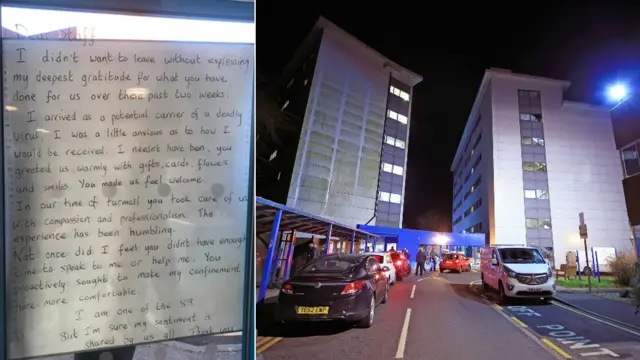 Dear Staff
I didn't want to leave without expressing
my deepest gratitude for what you have
done for us over these past two weeks.
I arrived as a potential carrier of a deadly
virus. I was a little anxious as to how I
would be received. I needn't have been, you
greeted us warmly with gifts, cards, flowers
and smiles. You made us feel welcome.
In our time of turmoil you took care of us
with compassion and professionalism. The
experience has been humbling.
Not once did I feel you didn't have enough
time to speak to me or help me. You
proactively sought to make my confinement
here more comfortable.
I am one of the 83.
But I'm sure my sentiment is
shared by us all. Thank you
OFF POINT